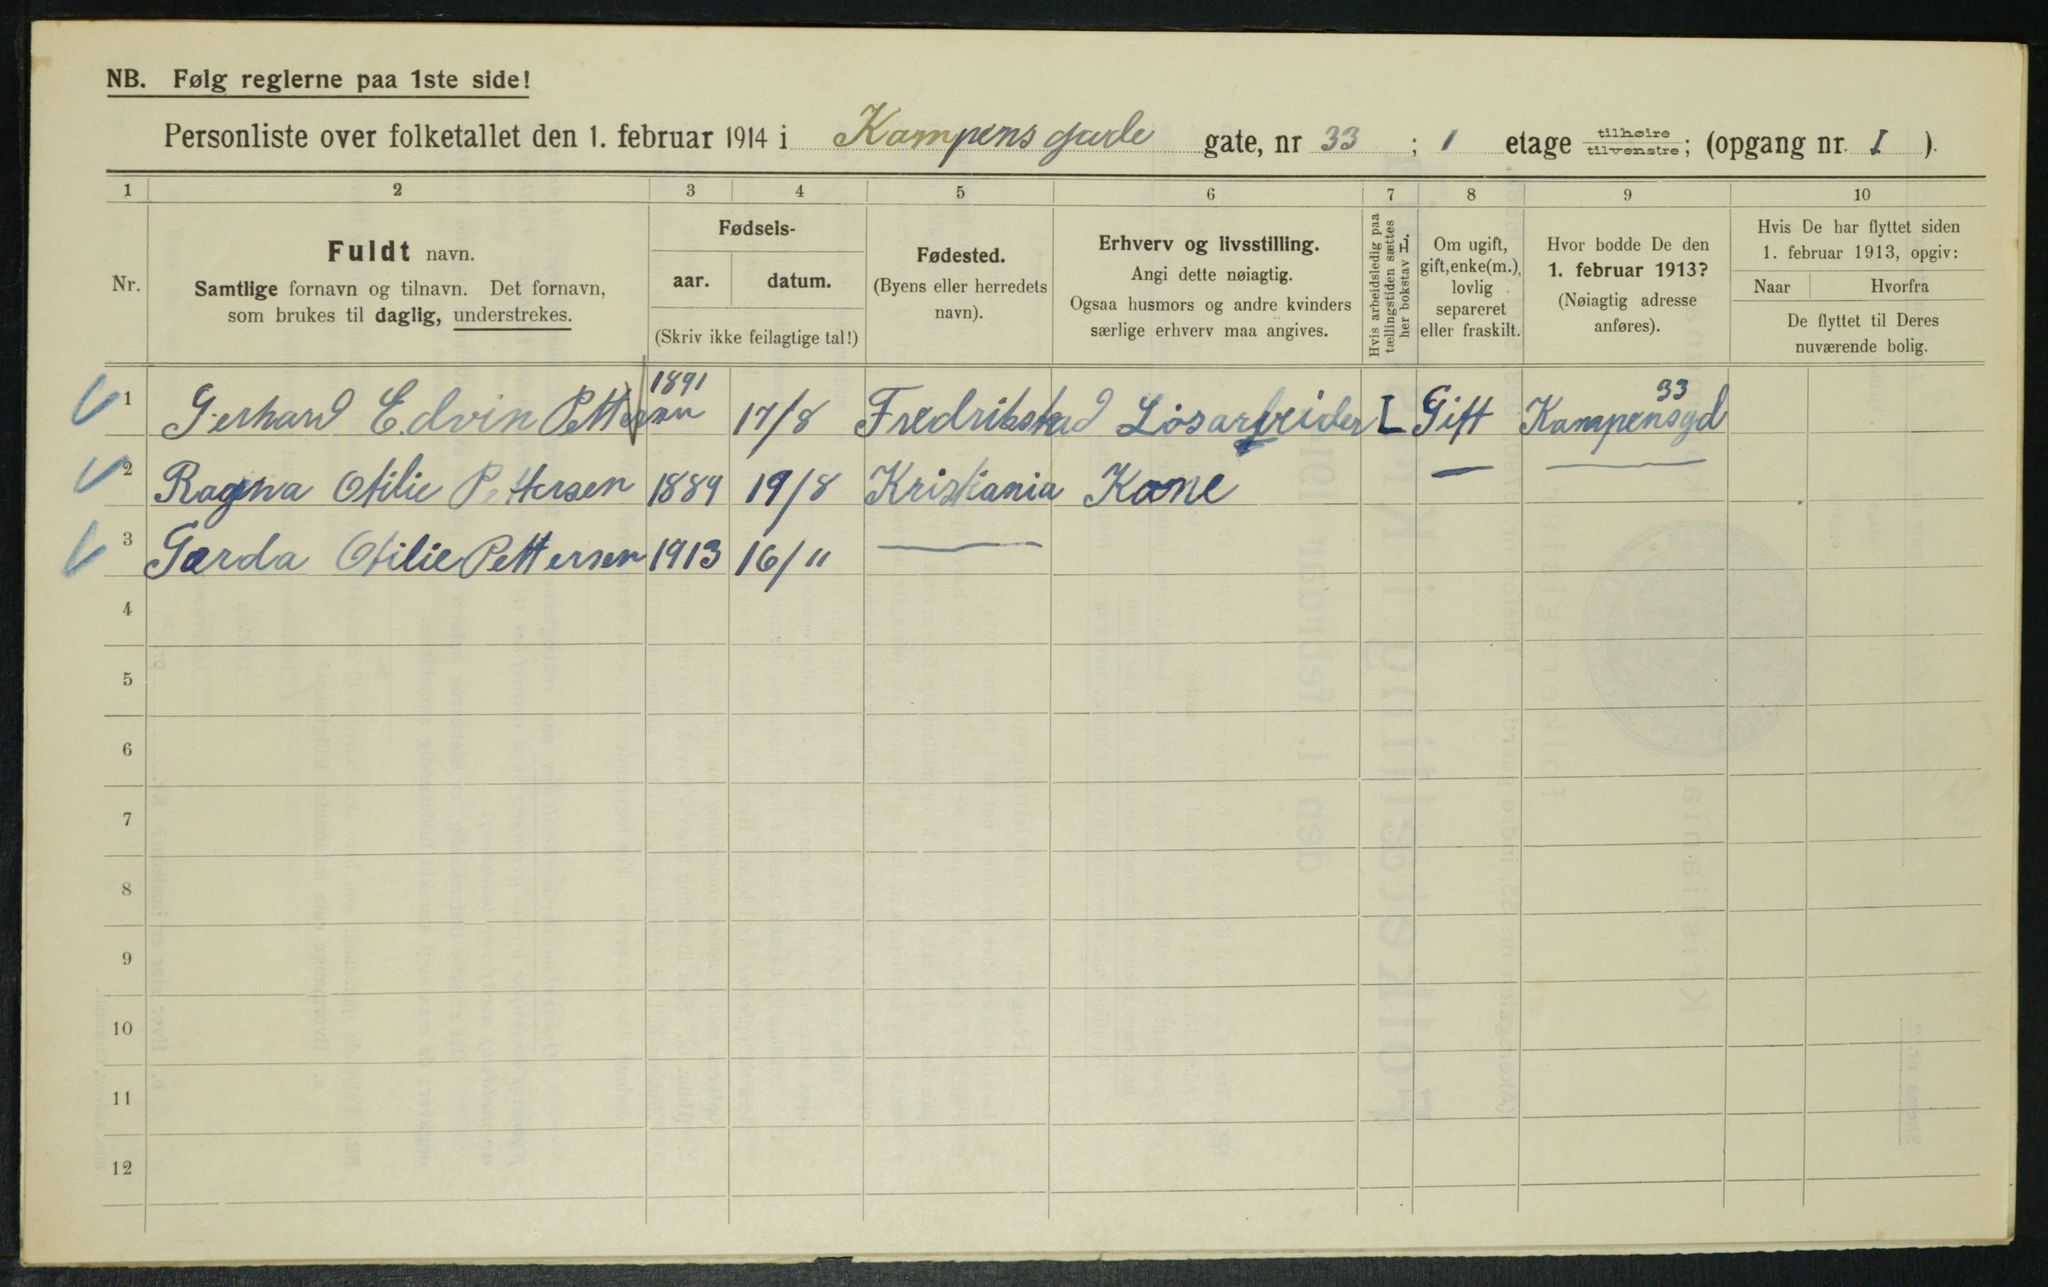 NB. Følg reglerne paa 1ste side!
Personliste over folketallet den 1. februar 1914 i Kampens gade gate, nr 33 ; 1 etage tilhøire / tilvenstre; (opgang nr. I ).
1 2 3 4 5 6 7 8 9 10
Nr.
Fuldt navn.
Samtlige fornavn og tilnavn. Det fornavn,
som brukes til daglig, understrekes.
Fødsels-
aar. datum.
(Skriv ikke feilagtige tal!)
Fødested.
(Byens eller herredets
navn).
Erhverv og livsstilling.
Angi dette nøiagtig.
Ogsaa husmors og andre kvinders
særlige erhverv maa angives.
Hvis arbeidsledig paa
tællingstiden sættes
her bokstav L.
Om ugift,
gift, enke(m.),
lovlig
separeret
eller fraskilt.
Hvor bodde De den
1. februar 1913?
(Nøiagtig adresse
anføres).
Hvis De har flyttet siden
1. februar 1913, opgiv:
Naar Hvorfra
De flyttet til Deres
nuværende bolig.
1 Gerhard Edvin Pettersen 1891 17/8 Fredrikstad Løsarbeider L Gift Kampensgd 33
2 Ragna Otilie Pettersen 1889 19/8 Kristiania Kone — —
3 Gærda Otilie Pettersen 1913 16/11 —
4
5
6
7
8
9
10
11
12